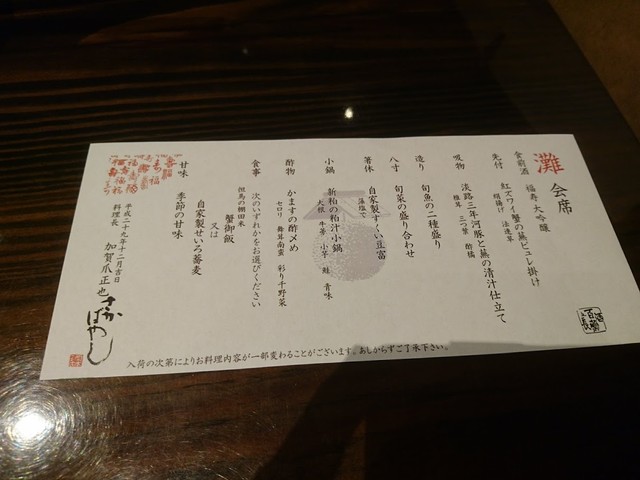 灘 会席
食前酒 福寿 大吟醸
先付 紅ズワイ蟹の蕪ピュレ掛け
絹揚げ 法蓮草
吸物 淡路三年河豚と蕪の清汁仕立て
椎茸 三つ葉 酢橘
造り 旬魚の二種盛り
八寸 旬菜の盛り合わせ
箸休 自家製すくい豆富
藻塩で
小鍋 新粕の粕汁小鍋
大根 牛蒡 小芋 鮭 青味
酢物 かますの酢〆め
セロリ 舞茸南蛮 彩り千野菜
食事 次のいずれかをお選びください
蟹御飯
但馬の棚田米
又は
自家製せいろ蕎麦
甘味 季節の甘味
平成二十九年十二月吉日
料理長 加賀爪正也
さかばやし
入荷の次第によりお料理内容が一部変わることがございます。あしからずご了承下さい。